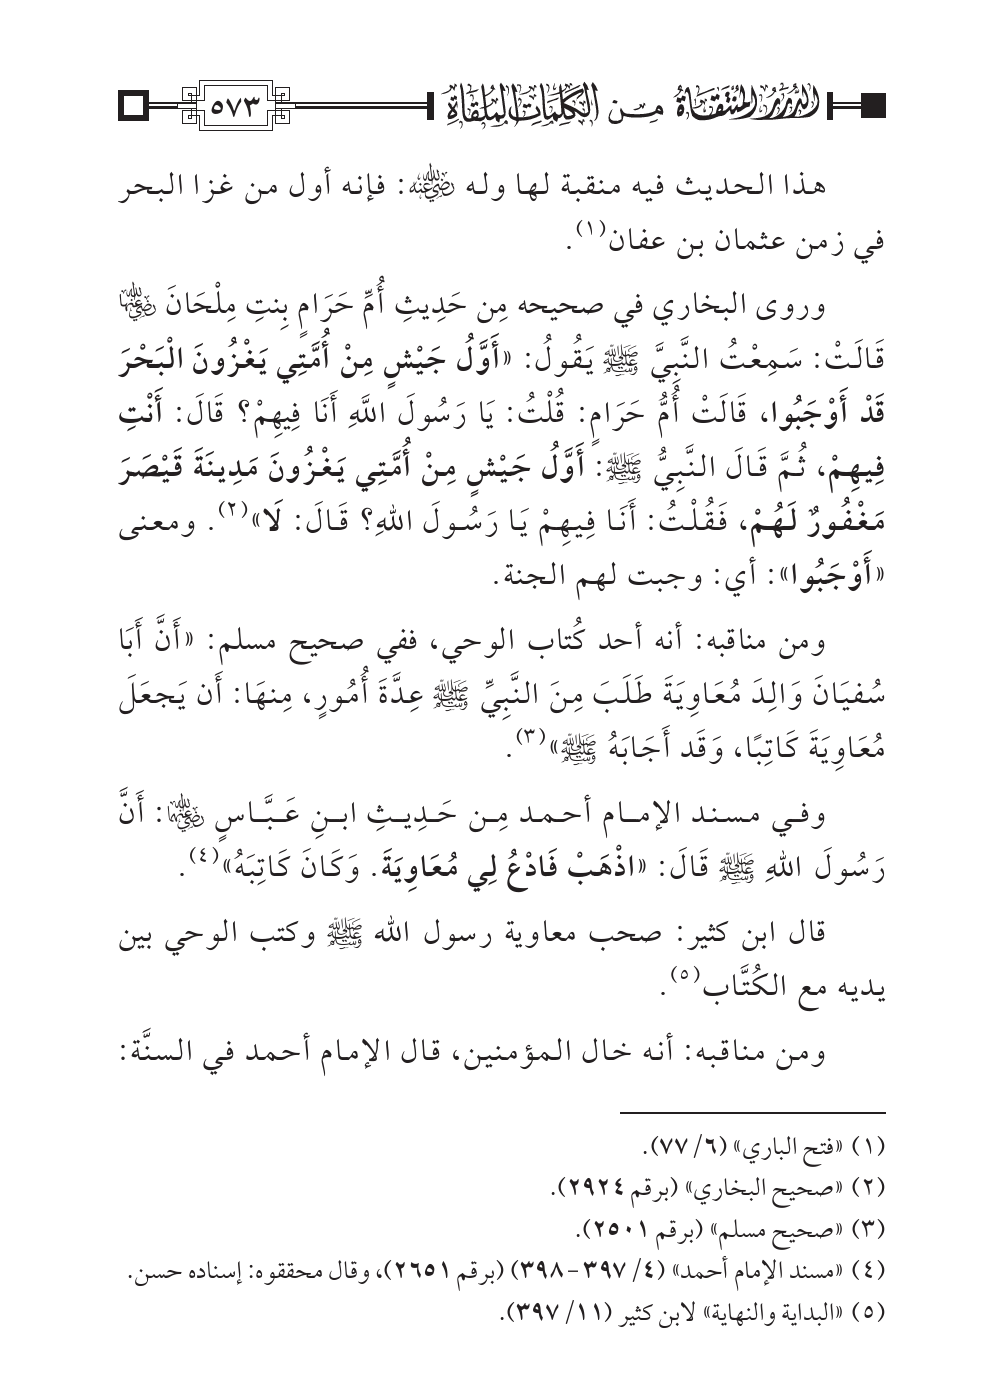 الدُّرَرُ المُنْتَقَاةُ مِن الكَلِمَاتِ المُلْقَاةِ ٥٧٣
هذا الحديث فيه منقبة لها وله رضي الله عنه: فإنه أول من غزا البحر
في زمن عثمان بن عفان(١).
وروى البخاري في صحيحه مِن حَدِيثِ أُمِّ حَرَامٍ بِنتِ مِلْحَانَ رضي الله عنها
قَالَتْ: سَمِعْتُ النَّبِيَّ ﷺ يَقُولُ: «أَوَّلُ جَيْشٍ مِنْ أُمَّتِي يَغْزُونَ الْبَحْرَ
قَدْ أَوْجَبُوا، قَالَتْ أُمُّ حَرَامٍ: قُلْتُ: يَا رَسُولَ اللَّهِ أَنَا فِيهِمْ؟ قَالَ: أَنْتِ
فِيهِمْ، ثُمَّ قَالَ النَّبِيُّ ﷺ: أَوَّلُ جَيْشٍ مِنْ أُمَّتِي يَغْزُونَ مَدِينَةَ قَيْصَرَ
مَغْفُورٌ لَهُمْ، فَقُلْتُ: أَنَا فِيهِمْ يَا رَسُولَ اللهِ؟ قَالَ: لَا»(٢). ومعنى
«أَوْجَبُوا»: أي: وجبت لهم الجنة.
ومن مناقبه: أنه أحد كُتاب الوحي، ففي صحيح مسلم: «أَنَّ أَبَا
سُفيَانَ وَالِدَ مُعَاوِيَةَ طَلَبَ مِنَ النَّبِيِّ ﷺ عِدَّةَ أُمُورٍ، مِنهَا: أَن يَجعَلَ
مُعَاوِيَةَ كَاتِبًا، وَقَد أَجَابَهُ ﷺ»(٣).
وفي مسند الإمام أحمد مِن حَدِيثِ ابنِ عَبَّاسٍ رضي الله عنهما: أَنَّ
رَسُولَ اللهِ ﷺ قَالَ: «اذْهَبْ فَادْعُ لِي مُعَاوِيَةَ. وَكَانَ كَاتِبَهُ»(٤).
قال ابن كثير: صحب معاوية رسول الله ﷺ وكتب الوحي بين
يديه مع الكُتَّاب(٥).
ومن مناقبه: أنه خال المؤمنين، قال الإمام أحمد في السنَّة:
(١) «فتح الباري» (٦/ ٧٧).
(٢) «صحيح البخاري» (برقم ٢٩٢٤).
(٣) «صحيح مسلم» (برقم ٢٥٠١).
(٤) «مسند الإمام أحمد» (٤/ ٣٩٧-٣٩٨) (برقم ٢٦٥١)، وقال محققوه: إسناده حسن.
(٥) «البداية والنهاية» لابن كثير (١١/ ٣٩٧).